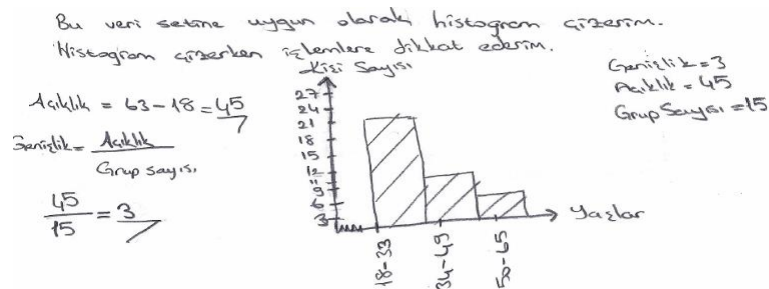 Bu veri setine uygun olarak histogram çizerim.
Histogram çizerken işlemlere dikkat ederim.
Açıklık = 63-18 = 45
Genişlik = Açıklık
Grup sayısı
45
15
= 3
Kişi Sayısı
27
24
21
18
15
12
11
9
6
3
18-33
34-49
50-65
Yaşlar
Genişlik = 3
Açıklık = 45
Grup Sayısı = 15